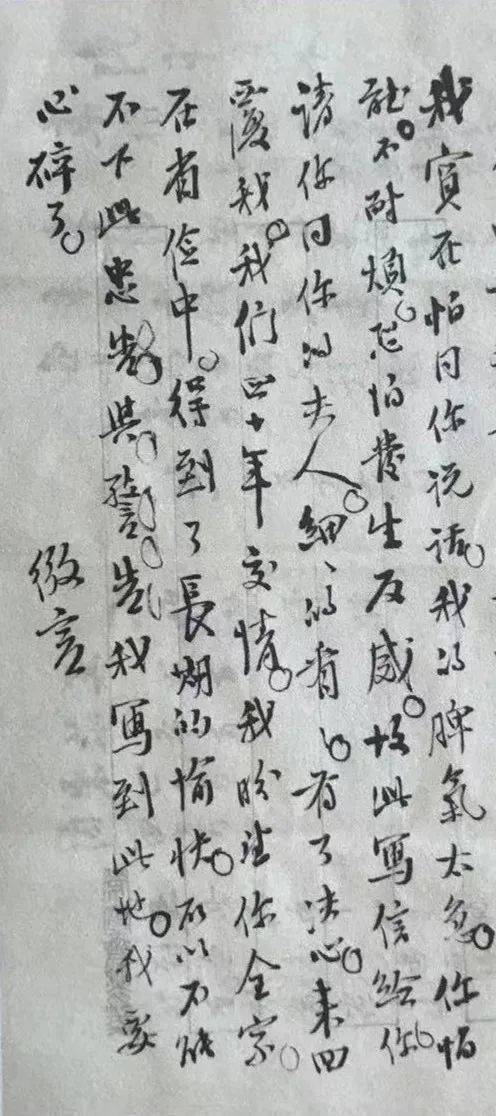 我實在怕同你说话。我的脾氣太急。你怕
能不耐煩。恐怕發生反感。故此寫信给你。
请你同你的夫人。細、的看、。有了决心。来回
覆我。我们四十年交情。我盼望你全家。
在省俭中。得到了長期的愉快。所以不能
不下此忠告。與警告。我寫到此地。我要
心碎了。
微言